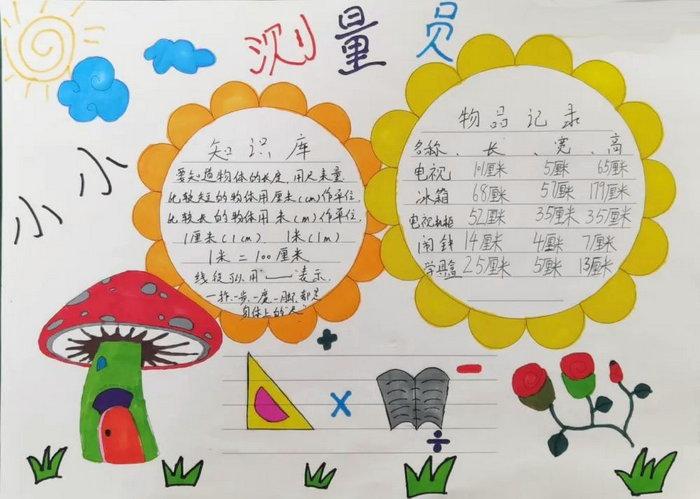 小小测量员
知识库
要知道物体的长度,用尺来量
比较短的物体用厘米(cm)作单位.
比较长的物体用米(m)作单位.
1厘米(1cm) 1米(1m)
1米=100厘米
线段可以用"——"表示.
一拃、一步、一度、一脚、都是
身体上的"尺"
物品记录
名称、长、宽、高
电视 101厘米 5厘米 65厘米
冰箱 68厘米 57厘米 179厘米
电视机柜 52厘米 35厘米 35厘米
闹钟 14厘米 4厘米 7厘米
学具盒 25厘米 5厘米 13厘米
+
×
−
÷